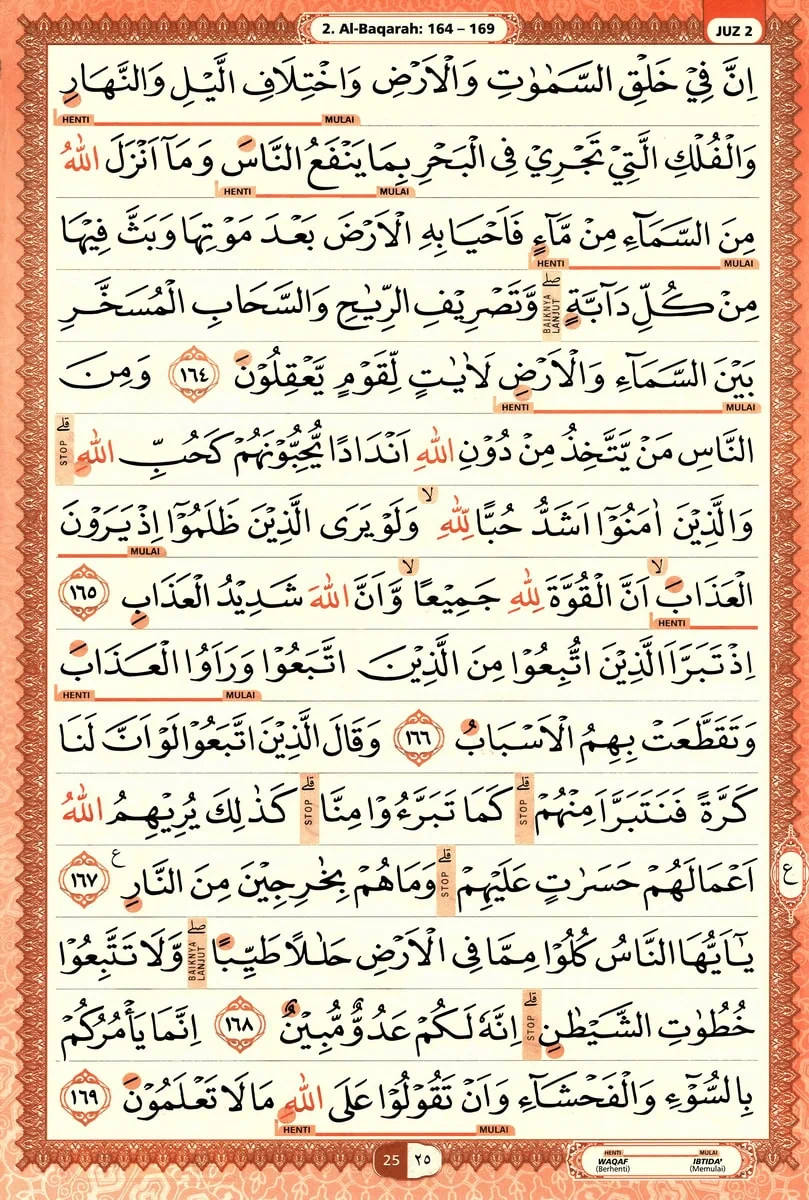 2. Al-Baqarah: 164 – 169
JUZ 2
اِنَّ فِيْ خَلْقِ السَّمٰوٰتِ وَالْاَرْضِ وَاخْتِلَافِ الَّيْلِ وَالنَّهَارِ
HENTI MULAI
وَالْفُلْكِ الَّتِيْ تَجْرِيْ فِى الْبَحْرِ بِمَا يَنْفَعُ النَّاسَ وَمَآ اَنْزَلَ اللّٰهُ
HENTI MULAI
مِنَ السَّمَاۤءِ مِنْ مَّاۤءٍ فَاَحْيَا بِهِ الْاَرْضَ بَعْدَ مَوْتِهَا وَبَثَّ فِيْهَا
HENTI MULAI
مِنْ كُلِّ دَاۤبَّةٍ ۖ وَّتَصْرِيْفِ الرِّيٰحِ وَالسَّحَابِ الْمُسَخَّرِ
BAIKNYA LANJUT
بَيْنَ السَّمَاۤءِ وَالْاَرْضِ لَاٰيٰتٍ لِّقَوْمٍ يَّعْقِلُوْنَ ١٦٤ وَمِنَ
HENTI MULAI
النَّاسِ مَنْ يَّتَّخِذُ مِنْ دُوْنِ اللّٰهِ اَنْدَادًا يُّحِبُّوْنَهُمْ كَحُبِّ اللّٰهِ ۗ
STOP
وَالَّذِيْنَ اٰمَنُوْٓا اَشَدُّ حُبًّا لِّلّٰهِ ۙ وَلَوْ يَرَى الَّذِيْنَ ظَلَمُوْٓا اِذْ يَرَوْنَ
MULAI
الْعَذَابَ ۙ اَنَّ الْقُوَّةَ لِلّٰهِ جَمِيْعًا ۙ وَّاَنَّ اللّٰهَ شَدِيْدُ الْعَذَابِ ١٦٥
HENTI
اِذْ تَبَرَّاَ الَّذِيْنَ اتُّبِعُوْا مِنَ الَّذِيْنَ اتَّبَعُوْا وَرَاَوُا الْعَذَابَ
HENTI MULAI
وَتَقَطَّعَتْ بِهِمُ الْاَسْبَابُ ١٦٦ وَقَالَ الَّذِيْنَ اتَّبَعُوْا لَوْ اَنَّ لَنَا
كَرَّةً فَنَتَبَرَّاَ مِنْهُمْ ۗ كَمَا تَبَرَّءُوْا مِنَّا ۗ كَذٰلِكَ يُرِيْهِمُ اللّٰهُ
STOP STOP
اَعْمَالَهُمْ حَسَرٰتٍ عَلَيْهِمْ ۗ وَمَا هُمْ بِخٰرِجِيْنَ مِنَ النَّارِ ع ١٦٧
STOP
ع
يٰٓاَيُّهَا النَّاسُ كُلُوْا مِمَّا فِى الْاَرْضِ حَلٰلًا طَيِّبًا ۖ وَّلَا تَتَّبِعُوْا
BAIKNYA LANJUT
خُطُوٰتِ الشَّيْطٰنِ ۗ اِنَّهٗ لَكُمْ عَدُوٌّ مُّبِيْنٌ ١٦٨ اِنَّمَا يَأْمُرُكُمْ
STOP
بِالسُّوْۤءِ وَالْفَحْشَاۤءِ وَاَنْ تَقُوْلُوْا عَلَى اللّٰهِ مَا لَا تَعْلَمُوْنَ ١٦٩
HENTI MULAI
25 ٢٥
HENTI MULAI
WAQAF IBTIDA'
(Berhenti) (Memulai)